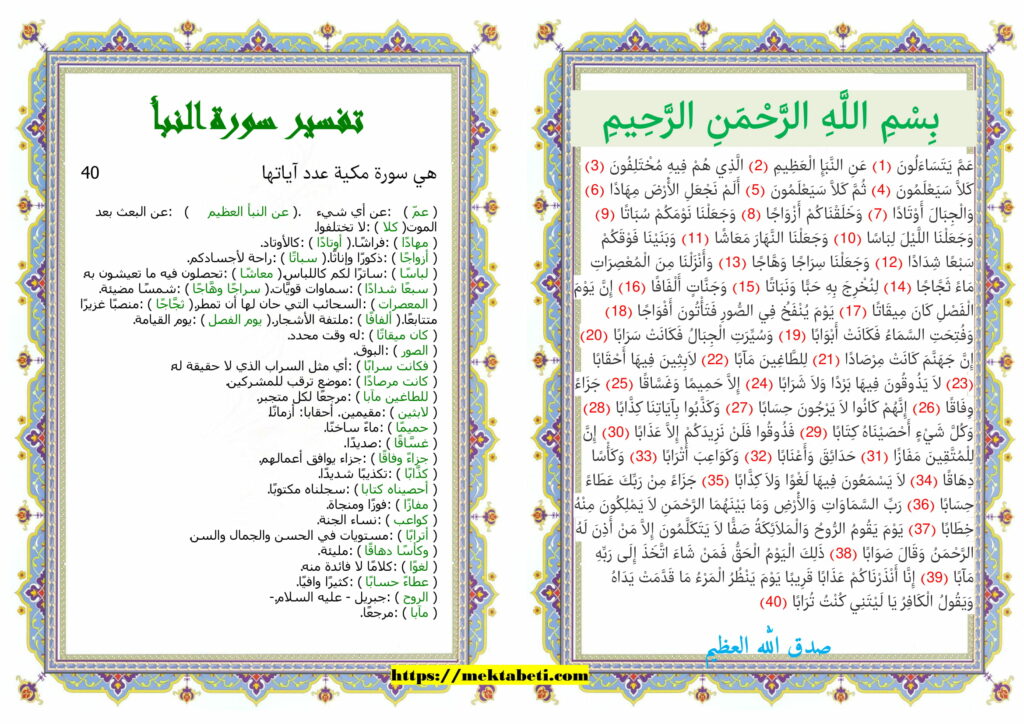 بِسْمِ اللَّهِ الرَّحْمَنِ الرَّحِيمِ
عَمَّ يَتَسَاءَلُونَ (1) عَنِ النَّبَإِ الْعَظِيمِ (2) الَّذِي هُمْ فِيهِ مُخْتَلِفُونَ (3)
كَلَّا سَيَعْلَمُونَ (4) ثُمَّ كَلَّا سَيَعْلَمُونَ (5) أَلَمْ نَجْعَلِ الْأَرْضَ مِهَادًا (6)
وَالْجِبَالَ أَوْتَادًا (7) وَخَلَقْنَاكُمْ أَزْوَاجًا (8) وَجَعَلْنَا نَوْمَكُمْ سُبَاتًا (9)
وَجَعَلْنَا اللَّيْلَ لِبَاسًا (10) وَجَعَلْنَا النَّهَارَ مَعَاشًا (11) وَبَنَيْنَا فَوْقَكُمْ
سَبْعًا شِدَادًا (12) وَجَعَلْنَا سِرَاجًا وَهَّاجًا (13) وَأَنْزَلْنَا مِنَ الْمُعْصِرَاتِ
مَاءً ثَجَّاجًا (14) لِنُخْرِجَ بِهِ حَبًّا وَنَبَاتًا (15) وَجَنَّاتٍ أَلْفَافًا (16) إِنَّ يَوْمَ
الْفَصْلِ كَانَ مِيقَاتًا (17) يَوْمَ يُنْفَخُ فِي الصُّورِ فَتَأْتُونَ أَفْوَاجًا (18)
وَفُتِحَتِ السَّمَاءُ فَكَانَتْ أَبْوَابًا (19) وَسُيِّرَتِ الْجِبَالُ فَكَانَتْ سَرَابًا (20)
إِنَّ جَهَنَّمَ كَانَتْ مِرْصَادًا (21) لِلطَّاغِينَ مَآبًا (22) لَابِثِينَ فِيهَا أَحْقَابًا
(23) لَا يَذُوقُونَ فِيهَا بَرْدًا وَلَا شَرَابًا (24) إِلَّا حَمِيمًا وَغَسَّاقًا (25) جَزَاءً
وِفَاقًا (26) إِنَّهُمْ كَانُوا لَا يَرْجُونَ حِسَابًا (27) وَكَذَّبُوا بِآيَاتِنَا كِذَّابًا (28)
وَكُلَّ شَيْءٍ أَحْصَيْنَاهُ كِتَابًا (29) فَذُوقُوا فَلَنْ نَزِيدَكُمْ إِلَّا عَذَابًا (30) إِنَّ
لِلْمُتَّقِينَ مَفَازًا (31) حَدَائِقَ وَأَعْنَابًا (32) وَكَوَاعِبَ أَتْرَابًا (33) وَكَأْسًا
دِهَاقًا (34) لَا يَسْمَعُونَ فِيهَا لَغْوًا وَلَا كِذَّابًا (35) جَزَاءً مِنْ رَبِّكَ عَطَاءً
حِسَابًا (36) رَبِّ السَّمَاوَاتِ وَالْأَرْضِ وَمَا بَيْنَهُمَا الرَّحْمَنِ لَا يَمْلِكُونَ مِنْهُ
خِطَابًا (37) يَوْمَ يَقُومُ الرُّوحُ وَالْمَلَائِكَةُ صَفًّا لَا يَتَكَلَّمُونَ إِلَّا مَنْ أَذِنَ لَهُ
الرَّحْمَنُ وَقَالَ صَوَابًا (38) ذَلِكَ الْيَوْمُ الْحَقُّ فَمَنْ شَاءَ اتَّخَذَ إِلَى رَبِّهِ
مَآبًا (39) إِنَّا أَنْذَرْنَاكُمْ عَذَابًا قَرِيبًا يَوْمَ يَنْظُرُ الْمَرْءُ مَا قَدَّمَتْ يَدَاهُ
وَيَقُولُ الْكَافِرُ يَا لَيْتَنِي كُنْتُ تُرَابًا (40)
صدق الله العظيم
تفسير سورة النبأ
هي سورة مكية عدد آياتها 40
( عمّ ) :عن أي شيء .( عن النبأ العظيم ) :عن البعث بعد
الموت( كلا ) :لا تختلفوا.
( مهادًا ) :فراشًا.( أوتادًا ) :كالأوتاد.
( أزواجًا ) :ذكورًا وإناثًا.( سباتًا ) :راحة لأجسادكم.
( لباسًا ) :ساترًا لكم كاللباس.( معاشًا ) :تحصلون فيه ما تعيشون به
( سبعًا شدادًا ) :سماوات قويَّات.( سراجًا وهَّاجًا ) :شمسًا مضيئة.
( المعصرات ) :السحائب التي حان لها أن تمطر.( ثجَّاجًا ) :منصبًا غزيرًا
متتابعًا.( ألفافًا ) :ملتفة الأشجار.( يوم الفصل ) :يوم القيامة.
( كان ميقاتًا ) :له وقت محدد.
( الصور ) :البوق.
( فكانت سرابًا ) :أي مثل السراب الذي لا حقيقة له
( كانت مرصادًا ) :موضع ترقب للمشركين.
( للطاغين مآبا ) :مرجعًا لكل متجبر.
( لابثين ) :مقيمين. أحقابا: أزمانًا.
( حميمًا ) :ماءً ساخنًا.
( غسَّاقًا ) :صديدًا.
( جزاءً وفاقًا ) :جزاء يوافق أعمالهم.
( كذَّابًا ) :تكذيبًا شديدًا.
( أحصيناه كتابا ) :سجلناه مكتوبًا.
( مفازًا ) :فوزًا ومنجاة.
( كواعب ) :نساء الجنة.
( أترابًا ) :مستويات في الحسن والجمال والسن
( وكأسًا دهاقًا ) :مليئة.
( لغوًا ) :كلامًا لا فائدة منه.
( عطاءً حسابًا ) :كثيرًا وافيًا.
( الروح ) :جبريل - عليه السلام.-
( مآبا ) :مرجعًا.
https://mektabeti.com